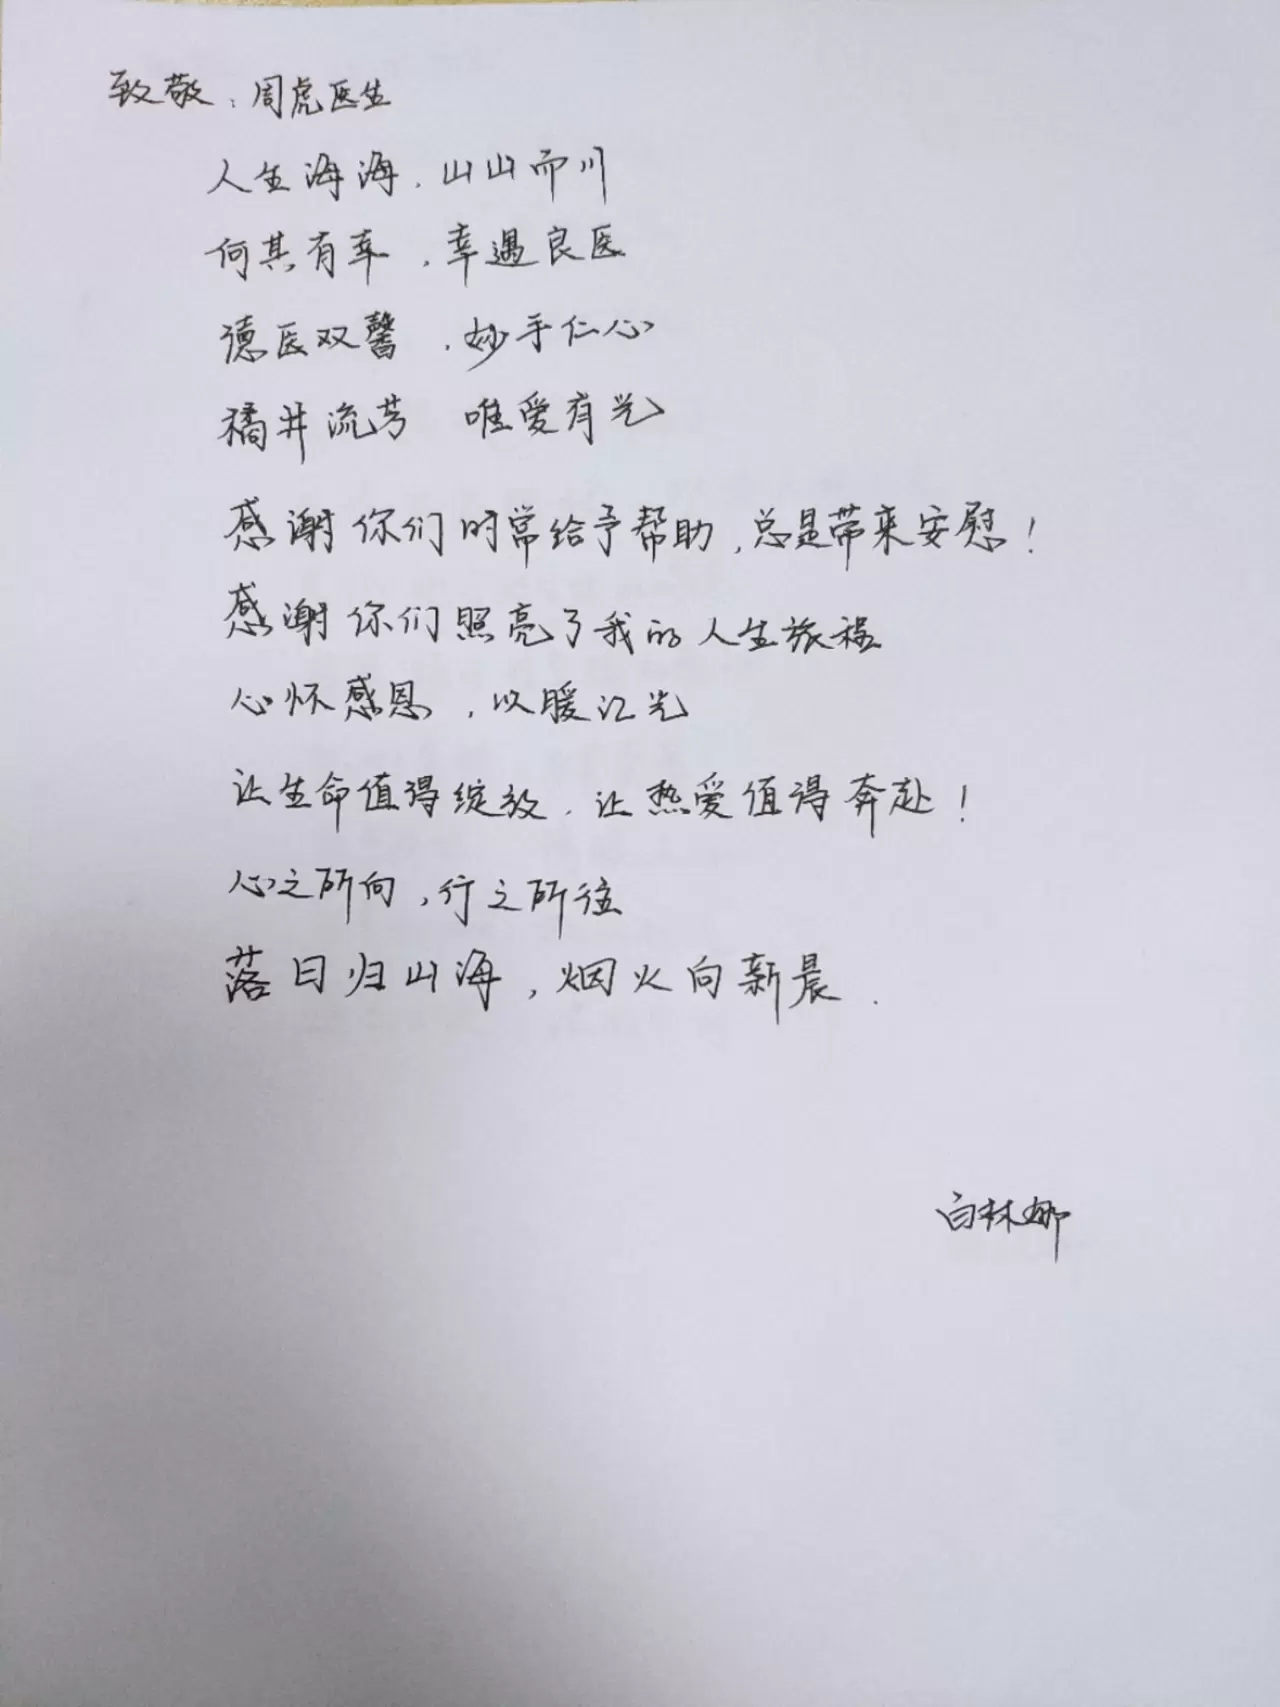 致敬：周虎医生
人生海海，山山而川
何其有幸，幸遇良医
德医双馨，妙手仁心
橘井流芳 唯爱有光
感谢你们时常给予帮助，总是带来安慰！
感谢你们照亮了我的人生旅程
心怀感恩，以暖汇光
让生命值得绽放，让热爱值得奔赴！
心之所向，行之所往
落日归山海，烟火向新晨．
白林娜